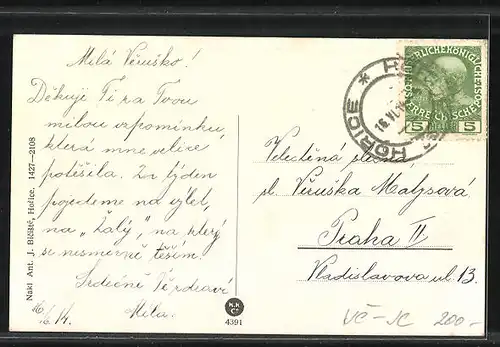 Milá Věruško!
Děkuje Ti za Tvou
milou vzpomínku,
která mne velice
potěšila. Za týden
pojedeme na výlet,
na „Žalý", na který
se nesmírně těším.
Srdečně Tě zdraví
Míla.
16/6 14.
Nakl. Ant. J. Bičiště, Hořice. 1427-2108
K.K.
Co
4391
HOŘICE
16.VI.14
5 5
Velectěná slečna
sl. Věruška Matysová
Praha II
Vladislavova ul. 13.
VČ-JC 200-